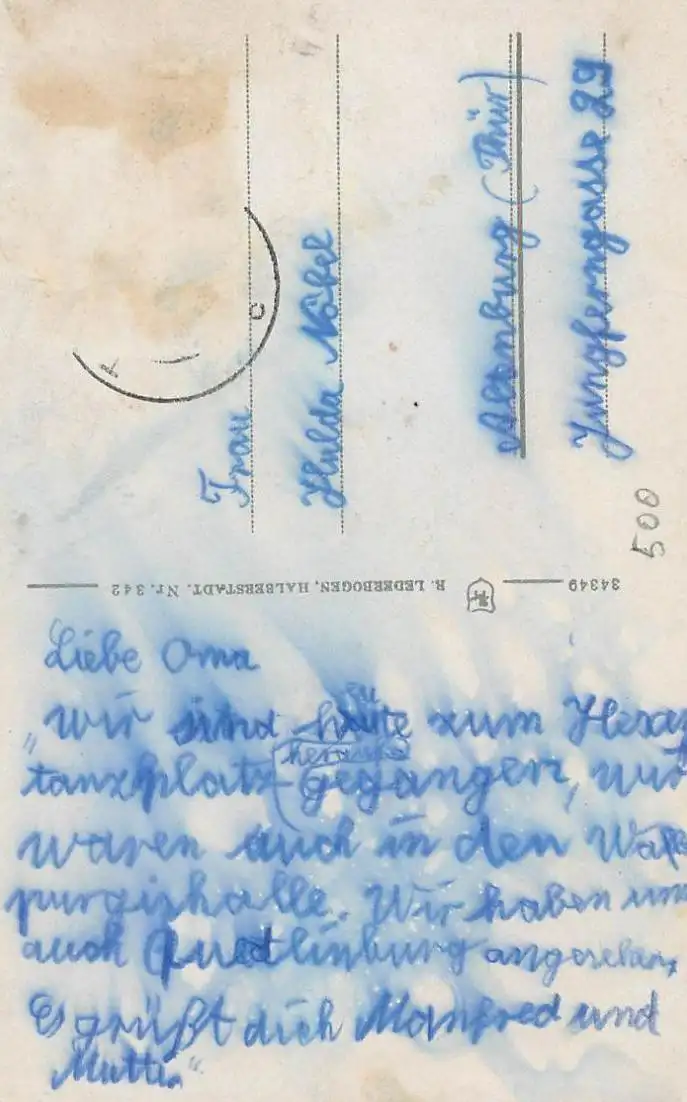 Frau
Hulda Nobel
Altenburg (Thür)
Jungferngasse 29
500
R. LEDERBOGEN, HALBERSTADT. Nr. 342
34349
Liebe Oma
„Wir sind heute zum Hexen
eu
tanzplatz gegangen, wir
waren auch in den Wal
purgishalle. Wir haben uns
auch Quedlinburg angesehen,
Es grüßt dich Manfred und
Mutti."